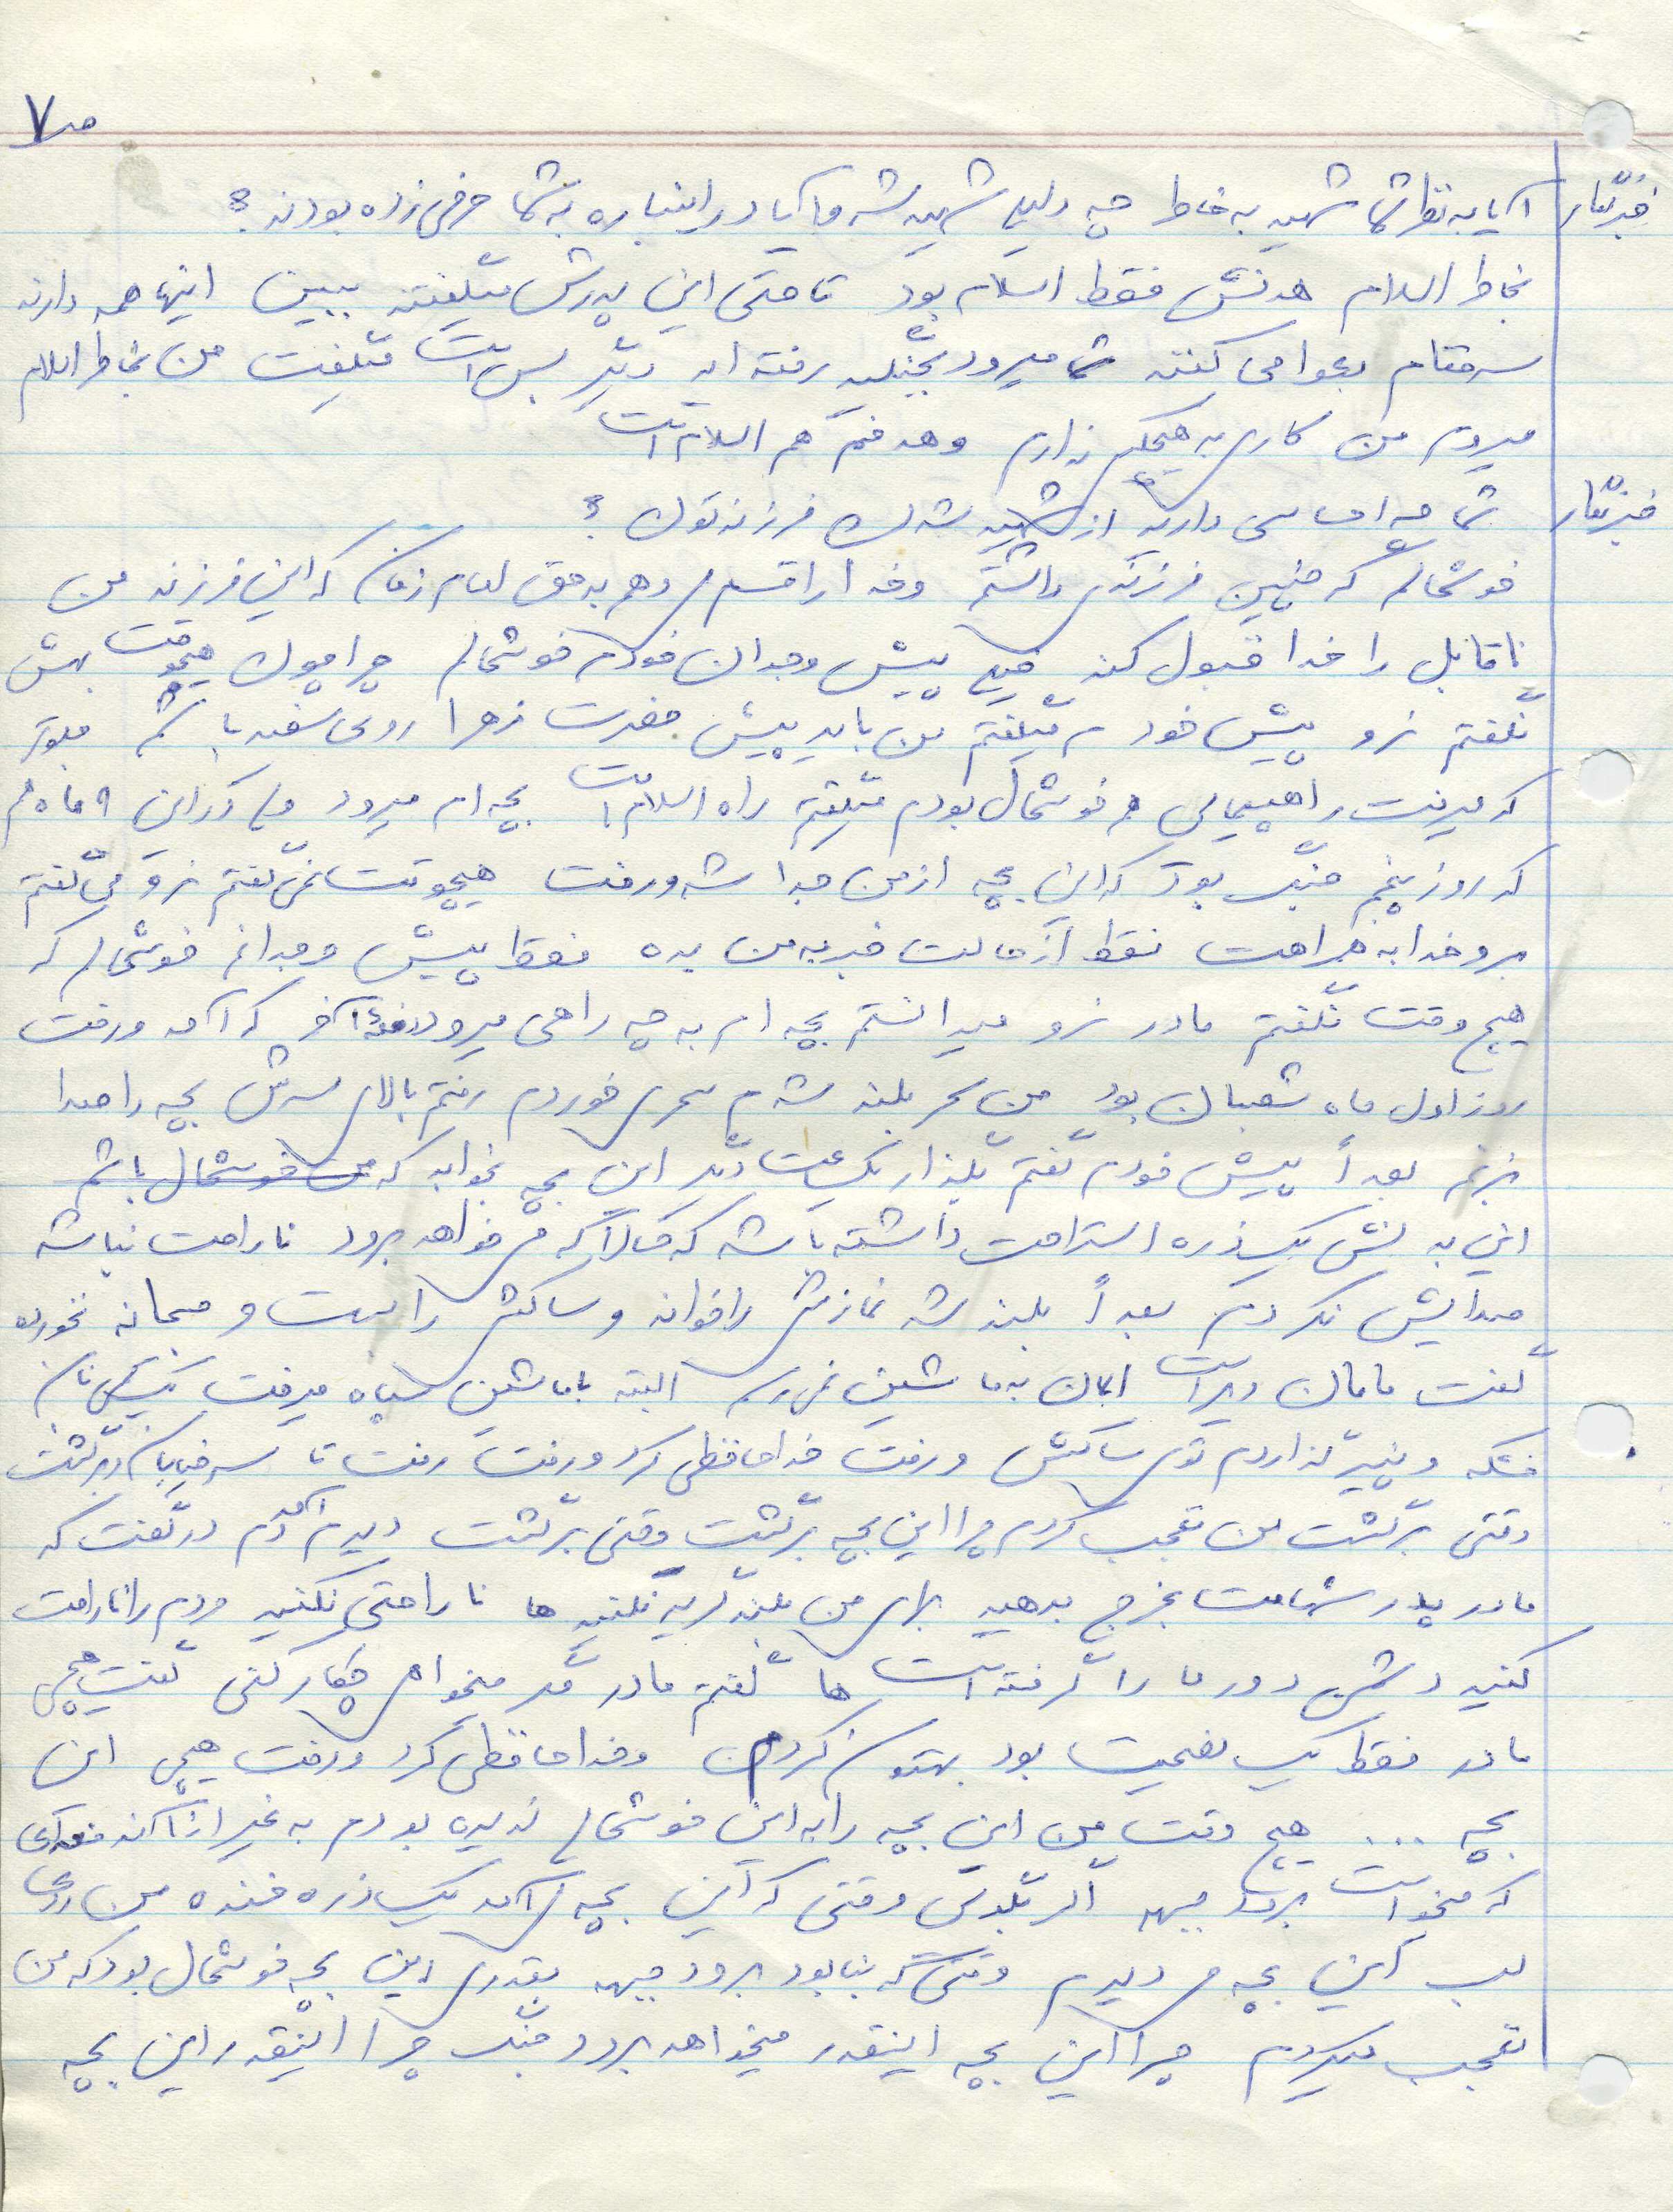 ص ۷
خبرنگار آیا به نظر شما شهید به خاطر چه دلیلی شهید شد و آیا در اینباره به شما حرفی زده بودند؟
بخاطر اسلام هدفش فقط اسلام بود تا حتی این پدرش میگفتند ببین اینها همه دارند
سر مقام دعوا می کنند شما میرود بجنگید رفته اید دیگر بس است میگفت من بخاطر اسلام
میروم من کاری به هیچکس ندارم و هدفم هم اسلام است
خبرنگار شما چه احساسی دارید از شهید شدن فرزندتون؟
خوشحالم که چنین فرزندی داشتم و خدا را قسم می دهم به حق امام زمان که این فرزند من
ناقابل را خدا قبول کند خیلی پیش وجدان خودم خوشحالم چرا چون هیچوقت بهش
نگفتم نرو پیش خودم میگفتم من باید پیش حضرت زهرا روی سفید باشم
که میرفت راهپیمایی خوشحال بودم میگفتم راه اسلام است بچه ام میرود ولی در این ۹ ماه هم
که روز پنجم جنگ بود که این بچه از من جدا شد و رفت هیچوقت نمی گفتم نرو می گفتم
برو خدا به همراهت فقط از حالت خبر به من بده فقط پیش وجدانم خوشحالم که
هیچ وقت نگفتم مادر نرو میدانستم بچه ام به چه راهی میرود دفعه آخر که آمد و رفت
روز اول ماه شعبان بود من سحر بلند شدم سحری خوردم رفتم بالای سرش بچه را صدا
بزنم بعداً پیش خودم گفتم بگذار یکساعت دیگر این بچه بخوابد که من خوشحال باشم
این بدنش یک ذره استراحت داشته باشد که حالا که می خواهد برود ناراحت نباشد
صدایش نکردم بعداً بلند شد نمازش را خواند و ساکش را بست و صبحانه نخورده
گفت مامان دیر است الان به ماشین نمی رسم البته با ماشین سپاه میرفت یک کمی نان
خشکه و پنیر گذاردم توی ساکش و رفت خداحافظی کرد و رفت رفت تا سر خیابان و برگشت
وقتی برگشت من تعجب کردم چرا این بچه برگشت وقتی برگشت دیدم آمد دم در گفت که
مادر پدر شهامت بخرج بدهید برای من بلند گریه نکنید ها ناراحتی نکنید مردم را ناراحت
کنید دشمن دور ما را گرفته است ها گفتم مادر مگر میخواهی چکار کنی گفت هیچی
مادر فقط یک نصیحت بود بهتون کردم و خداحافظی کرد و رفت هیچی این
بچه ... هیچ وقت من این بچه را به این خوشحالی ندیده بودم به غیر از آن چند دفعه ای
که میخواست برود جبهه اگر بگوئی وقتی که این بچه می آمد یک ذره خنده من روی
لب این بچه می دیدم وقتی که بنا بود برود جبهه بقدری این بچه خوشحال بود که من
تعجب میکردم چرا این بچه اینقدر میخواهد برود جنگ چرا اینقدر این بچه